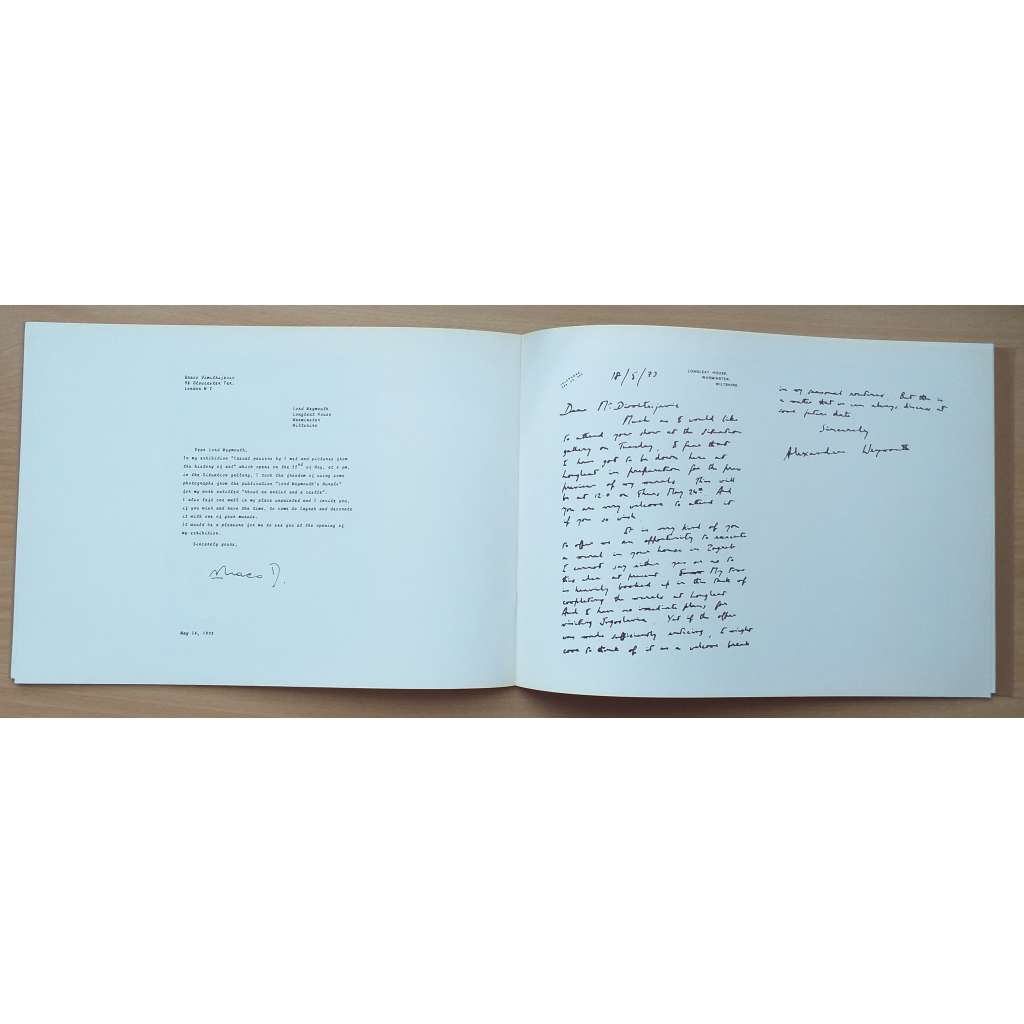 Braco Dimitrijevic
London N
Lord Weymouth
Longleat House
Warminster
Wiltshire
Dear Lord Weymouth,
In my exhibition "Casual passers by I met and pictures from
the history of art" which opens on the 22nd of May, at 6 pm,
in the Situation gallery, I took the freedom of using some
photographs from the publication "Lord Weymouth's Murals"
for my work entitled "About an artist and a
I also left one wall in my place unpainted and I invite you,
if you wish and have the time, to come to Zagreb and decorate
it with one of your murals.
It would be a pleasure for me to see you at the opening of
my exhibition.
Sincerely yours,
Braco D.
May 14, 1973
18/5/73
LONGLEAT HOUSE,
WARMINSTER,
WILTSHIRE.
Dear Mr Dimitrijevic
Much as I would like
to attend your show at the situation
gallery on Tuesday, I find that
I have got to be down here at
Longleat in preparation for the press
preview of my murals. This will
be at 12.0 on Thurs May 24th. And
you are very welcome to attend it
if you so wish.
It is very kind of you
to offer me an opportunity to execute
a mural in your house in Zagreb
I cannot say either yes or no to
this idea at present. My time
is heavily booked up in the task of
completing the murals at Longleat
And I have no immediate plans, for
visiting Jugoslavia. Yet if the offer
was made sufficiently enticing, I might
come to think of it as a welcome break
in my personal routines. But this is
a matter that we can always discuss at
some future date
Sincerely
Alexander Weymouth